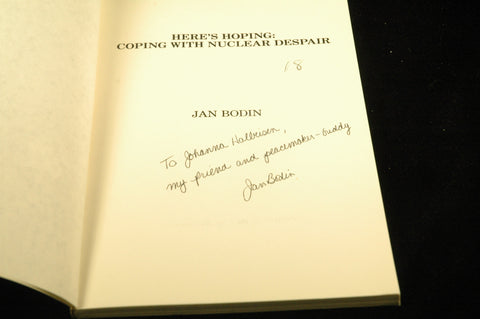 HERE'S HOPING:
COPING WITH NUCLEAR DESPAIR
18
JAN BODIN
To Johanna Halbeisen,
my friend and peacemaker-buddy
Jan Bodin